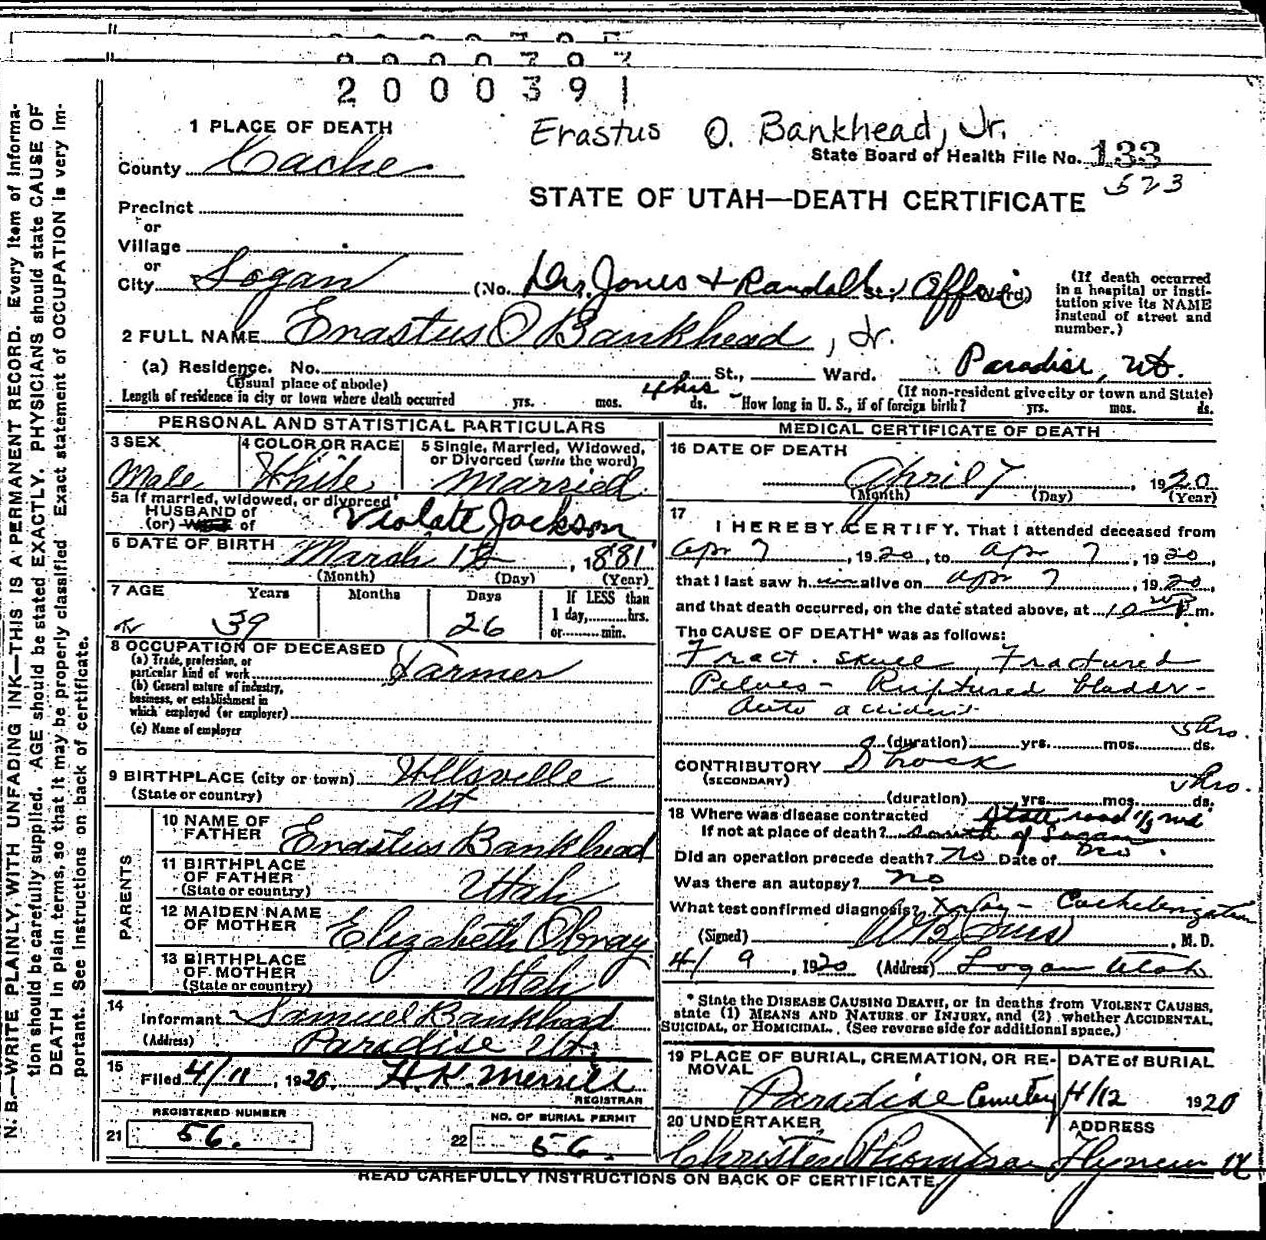 2000391
Erastus O. Bankhead, Jr.
1 PLACE OF DEATH
State Board of Health File No. 133
County Cache
523
STATE OF UTAH—DEATH CERTIFICATE
Precinct
or
Village
or
City Logan (No. Drs. Jones & Randall St.; Office Ward)
(If death occurred in a hospital or insti-
tution give its NAME instead of street and number.)
2 FULL NAME Erastus O Bankhead, Jr.
(a) Residence. No. St., Ward. Paradise, Ut.
(Usual place of abode) (If non-resident give city or town and State)
Length of residence in city or town where death occurred yrs. mos. 4 hrs ds. How long in U. S., if of foreign birth? yrs. mos. ds.
PERSONAL AND STATISTICAL PARTICULARS
3 SEX Male
4 COLOR OR RACE White
5 Single, Married, Widowed, or Divorced (write the word) Married
5a If married, widowed, or divorced
HUSBAND of
(or) WIFE of Violate Jackson
6 DATE OF BIRTH March 12, 1881
(Month) (Day) (Year)
7 AGE Years Months Days If LESS than
1 day, hrs.
39 26 or min.
8 OCCUPATION OF DECEASED
(a) Trade, profession, or
particular kind of work Farmer
(b) General nature of industry,
business, or establishment in
which employed (or employer)
(c) Name of employer
9 BIRTHPLACE (city or town) Wllsville
(State or country) Ut
PARENTS
10 NAME OF FATHER Erastus Bankhead
11 BIRTHPLACE OF FATHER
(State or country) Utah
12 MAIDEN NAME OF MOTHER Elizabeth Obray
13 BIRTHPLACE OF MOTHER
(State or country) Utah
14 Informant Samuel Bankhead
(Address) Paradise Ut.
15 Filed 4/11, 1920, H.K. Merrill
REGISTRAR
REGISTERED NUMBER
21 56.
NO. OF BURIAL PERMIT
22 56.
MEDICAL CERTIFICATE OF DEATH
16 DATE OF DEATH
April 7, 1920
(Month) (Day) (Year)
17 I HEREBY CERTIFY, That I attended deceased from
Apr 7, 1920, to Apr 7, 1920,
that I last saw him alive on Apr 7, 1920,
and that death occurred, on the date stated above, at 10 P m.
The CAUSE OF DEATH* was as follows:
Fract. skull, Fractured
Pelves - Ruptured bladdr -
Auto accident
5 hrs.
(duration) yrs. mos. ds.
CONTRIBUTORY Shock
(SECONDARY)
5 hrs.
(duration) yrs. mos. ds.
18 Where was disease contracted State road
If not at place of death? south of Logan
Did an operation precede death? no Date of
Was there an autopsy? no
What test confirmed diagnosis? X ray - Catheterization
(Signed) , M. D.
4/9, 1920 (Address) Logan Utah
* State the DISEASE CAUSING DEATH, or in deaths from VIOLENT CAUSES,
state (1) MEANS AND NATURE OF INJURY, and (2) whether ACCIDENTAL,
SUICIDAL, or HOMICIDAL. (See reverse side for additional space.)
19 PLACE OF BURIAL, CREMATION, OR RE-
MOVAL Paradise Cemetery
DATE of BURIAL
4/12 1920
20 UNDERTAKER
ADDRESS
READ CAREFULLY INSTRUCTIONS ON BACK OF CERTIFICATE
N. B.—WRITE PLAINLY, WITH UNFADING INK—THIS IS A PERMANENT RECORD. Every item of informa-
tion should be carefully supplied. AGE should be stated EXACTLY. PHYSICIANS should state CAUSE OF
DEATH in plain terms, so that it may be properly classified. Exact statement of OCCUPATION is very im-
portant. See instructions on back of certificate.